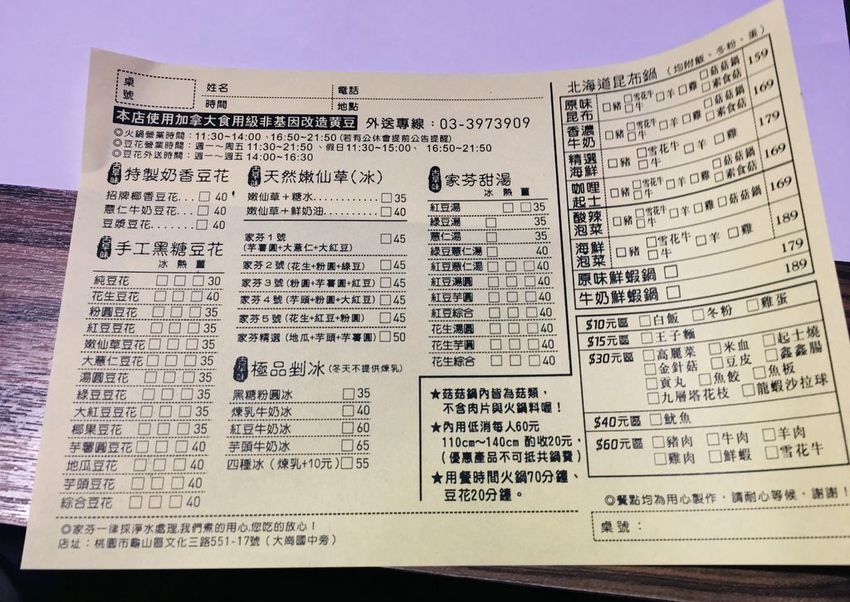 桌號 姓名 電話
時間 地點
本店使用加拿大食用級非基因改造黃豆 外送專線:03-3973909
◎火鍋營業時間:11:30~14:00、16:50~21:50(若有公休會提前公告提醒)
◎豆花營業時間:週一~週五11:30~21:50、假日11:30~15:00、16:50~21:50
◎豆花外送時間:週一~週五14:00~16:30
古早味 特製奶香豆花
招牌椰香豆花...□ 40
薏仁牛奶豆花...□ 40
豆漿豆花...□ 40
古早味 手工黑糖豆花
冰 熱 薑
純豆花 □ □ □ 30
花生豆花 □ □ □ 40
粉圓豆花 □ □ □ 35
紅豆豆花 □ □ □ 35
嫩仙草豆花 □ □ □ 35
大薏仁豆花 □ □ □ 35
湯圓豆花 □ □ □ 35
綠豆豆花 □ □ □ 35
大紅豆豆花 □ □ □ 35
椰果豆花 □ □ □ 35
芋薯圓豆花 □ □ □ 40
地瓜豆花 □ □ □ 40
芋頭豆花 □ □ □ 40
綜合豆花 □ □ □ 40
古早味 天然嫩仙草(冰)
嫩仙草+糖水 □ 35
嫩仙草+鮮奶油 □ 40
家芬1號 □ 45
(芋薯圓+大薏仁+大紅豆)
家芬2號(花生+粉圓+綠豆) □ 45
家芬3號(粉圓+芋薯圓+紅豆) □ 45
家芬4號(芋頭+粉圓+大紅豆) □ 45
家芬5號(花生+紅豆+粉圓) □ 45
家芬精選(地瓜+芋頭+芋薯圓) □ 50
古早味 極品剉冰(冬天不提供煉乳)
黑糖粉圓冰 □ 35
煉乳牛奶冰 □ 40
紅豆牛奶冰 □ 60
芋頭牛奶冰 □ 65
四種冰(煉乳+10元) □ 55
古早味 家芬甜湯
冰 熱 薑
紅豆湯 □ □ 35
綠豆湯 □ 35
薏仁湯 □ 35
綠豆薏仁湯 □ 40
紅豆薏仁湯 □ □ □ 40
紅豆湯圓 □ □ □ 40
紅豆芋圓 □ □ □ 40
紅豆綜合 □ □ □ 40
花生湯圓 □ □ □ 40
花生芋圓 □ □ □ 40
花生綜合 □ □ □ 40
★菇菇鍋內皆為菇類,
不含肉片與火鍋料喔!
★內用低消每人60元
110cm~140cm 酌收20元,
(優惠產品不可抵共鍋費)
★用餐時間火鍋70分鐘、
豆花20分鐘。
北海道昆布鍋(均附飯、冬粉、蛋)
原味昆布 □豬 □雪花牛 □牛 □羊 □雞 □菇菇鍋 □素食菇 159
香濃牛奶 □豬 □雪花牛 □牛 □羊 □雞 □菇菇鍋 □素食菇 169
精選海鮮 □豬 □雪花牛 □牛 □羊 □雞 179
咖哩起士 □豬 □雪花牛 □牛 □羊 □雞 □菇菇鍋 □素食菇 169
酸辣泡菜 □豬 □雪花牛 □牛 □羊 □雞 □菇菇鍋 169
海鮮泡菜 □豬 □雪花牛 □牛 □羊 □雞 189
原味鮮蝦鍋 □ 179
牛奶鮮蝦鍋 □ 189
$10元區 □白飯 □冬粉 □雞蛋
$15元區 □王子麵
$30元區 □高麗菜 □米血 □起士燒
□金針菇 □豆皮 □鑫鑫腸
□貢丸 □魚餃 □魚板
□九層塔花枝 □龍蝦沙拉球
$40元區 □魷魚
$60元區 □豬肉 □牛肉 □羊肉
□雞肉 □鮮蝦 □雪花牛
◎餐點均為用心製作,請耐心等候,謝謝!
桌號:
◎家芬一律採淨水處理,我們煮的用心,您吃的放心!
店址:桃園市龜山區文化三路551-17號(大崗國中旁)